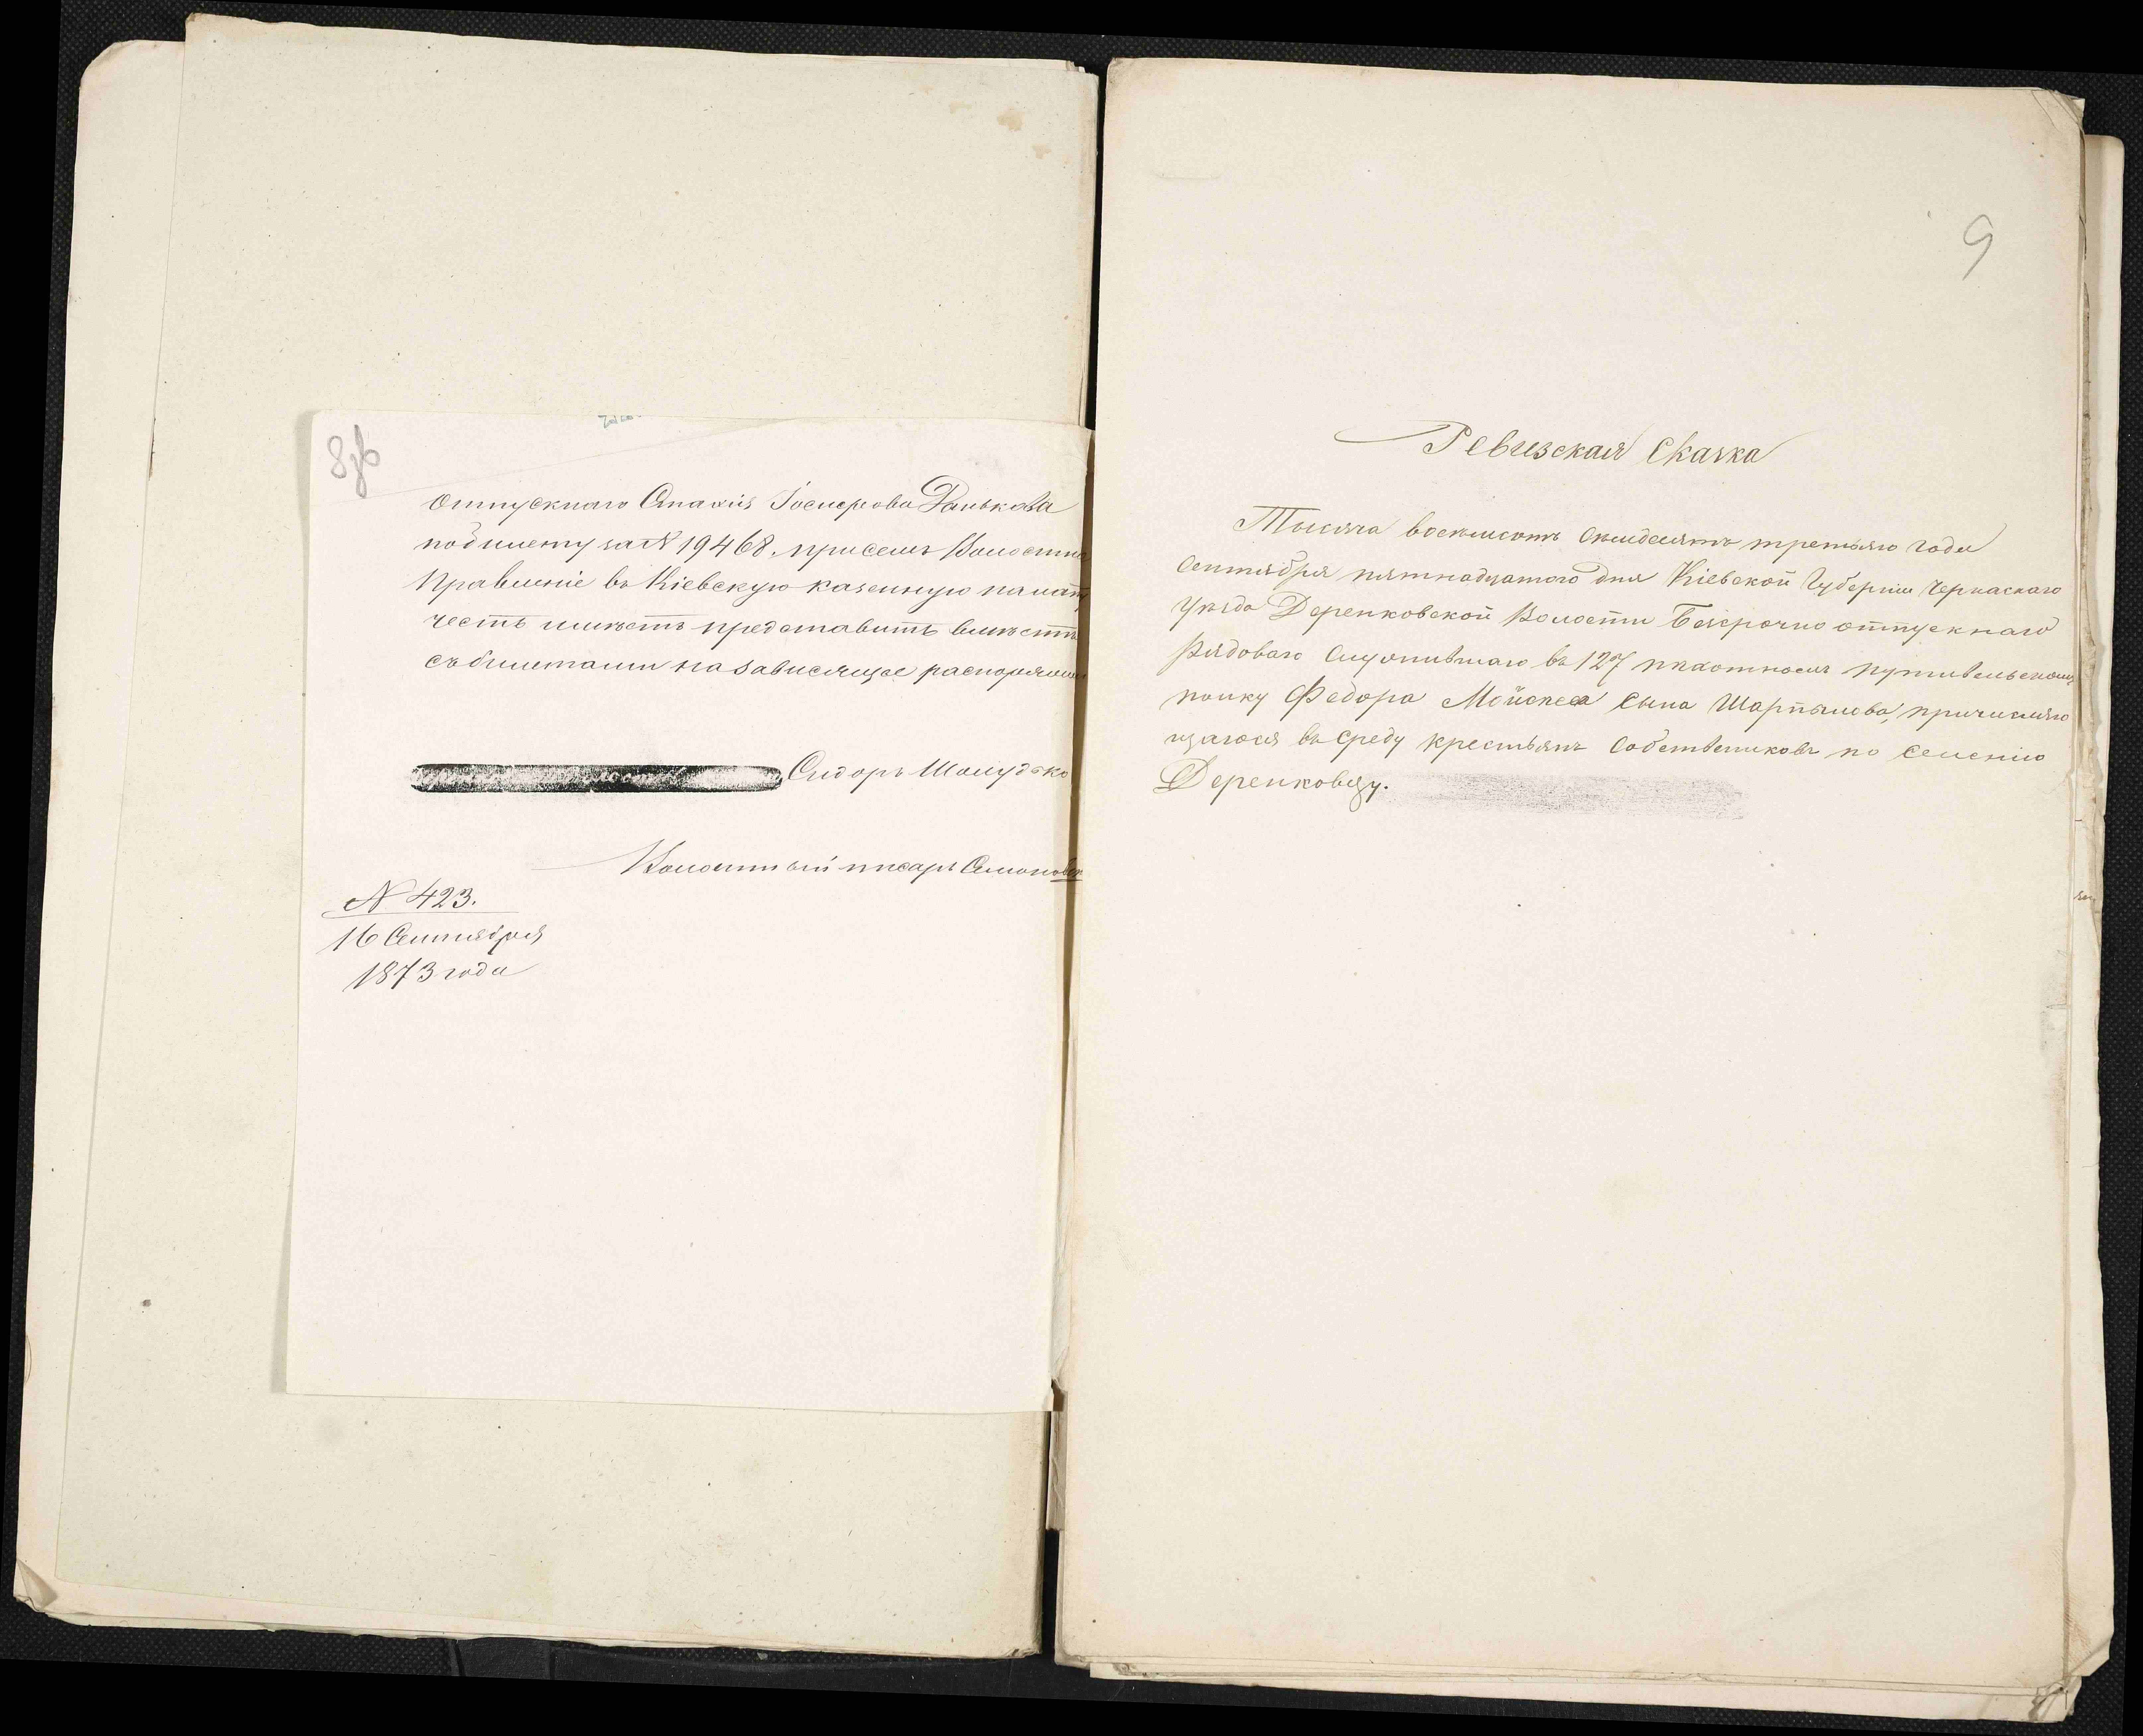 8об
отпускнаго Спахія Іосифова Данькова
по билету за № 19468. при семъ Волостное
Правленіе въ Кіевскую казенную палату
честь имѣетъ представить вмѣстѣ
съ билетами на зависящее распоряжен
Сидоръ
Волостный писарь
№ 423.
16 Сентября
1873 года
9
Ревизская Сказка
Тысяча восемьсотъ семьдесятъ третьяго года
Сентября пятнадцатого дня Кіевской Губерніи Черкаскаго
Уѣзда Деренковской Волости Безсрочно отпускнаго
Рядоваго в 127 пѣхотномъ Путивльскомъ
полку Федора Мойсея сына причисляю
щагося въ среду крестьянъ Собствениковъ по селенію
Деренковцу.